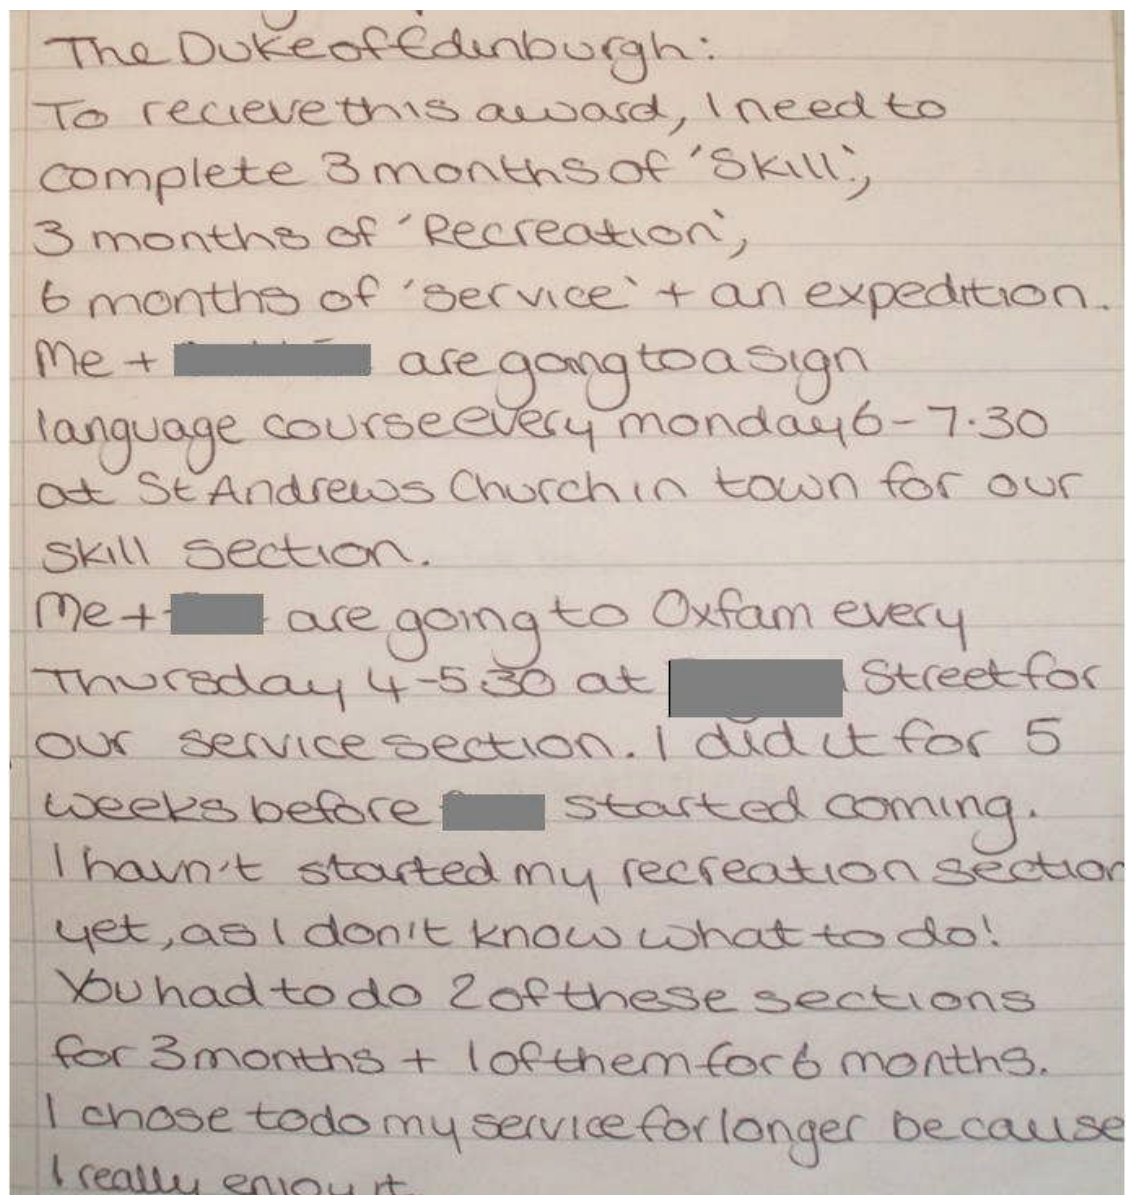 The Duke of Edinburgh:
To recieve this award, I need to
complete 3 months of 'Skill',
3 months of 'Recreation',
6 months of 'service' + an expedition.
Me + are going to a sign
language course every monday 6-7.30
at St Andrews Church in town for our
skill section.
Me + are going to Oxfam every
Thursday 4-5.30 at Street for
our service section. I did it for 5
weeks before started coming.
I havn't started my recreation section
yet, as I don't know what to do!
You had to do 2 of these sections
for 3 months + 1 of them for 6 months.
I chose to do my service for longer because
I really enjoy it